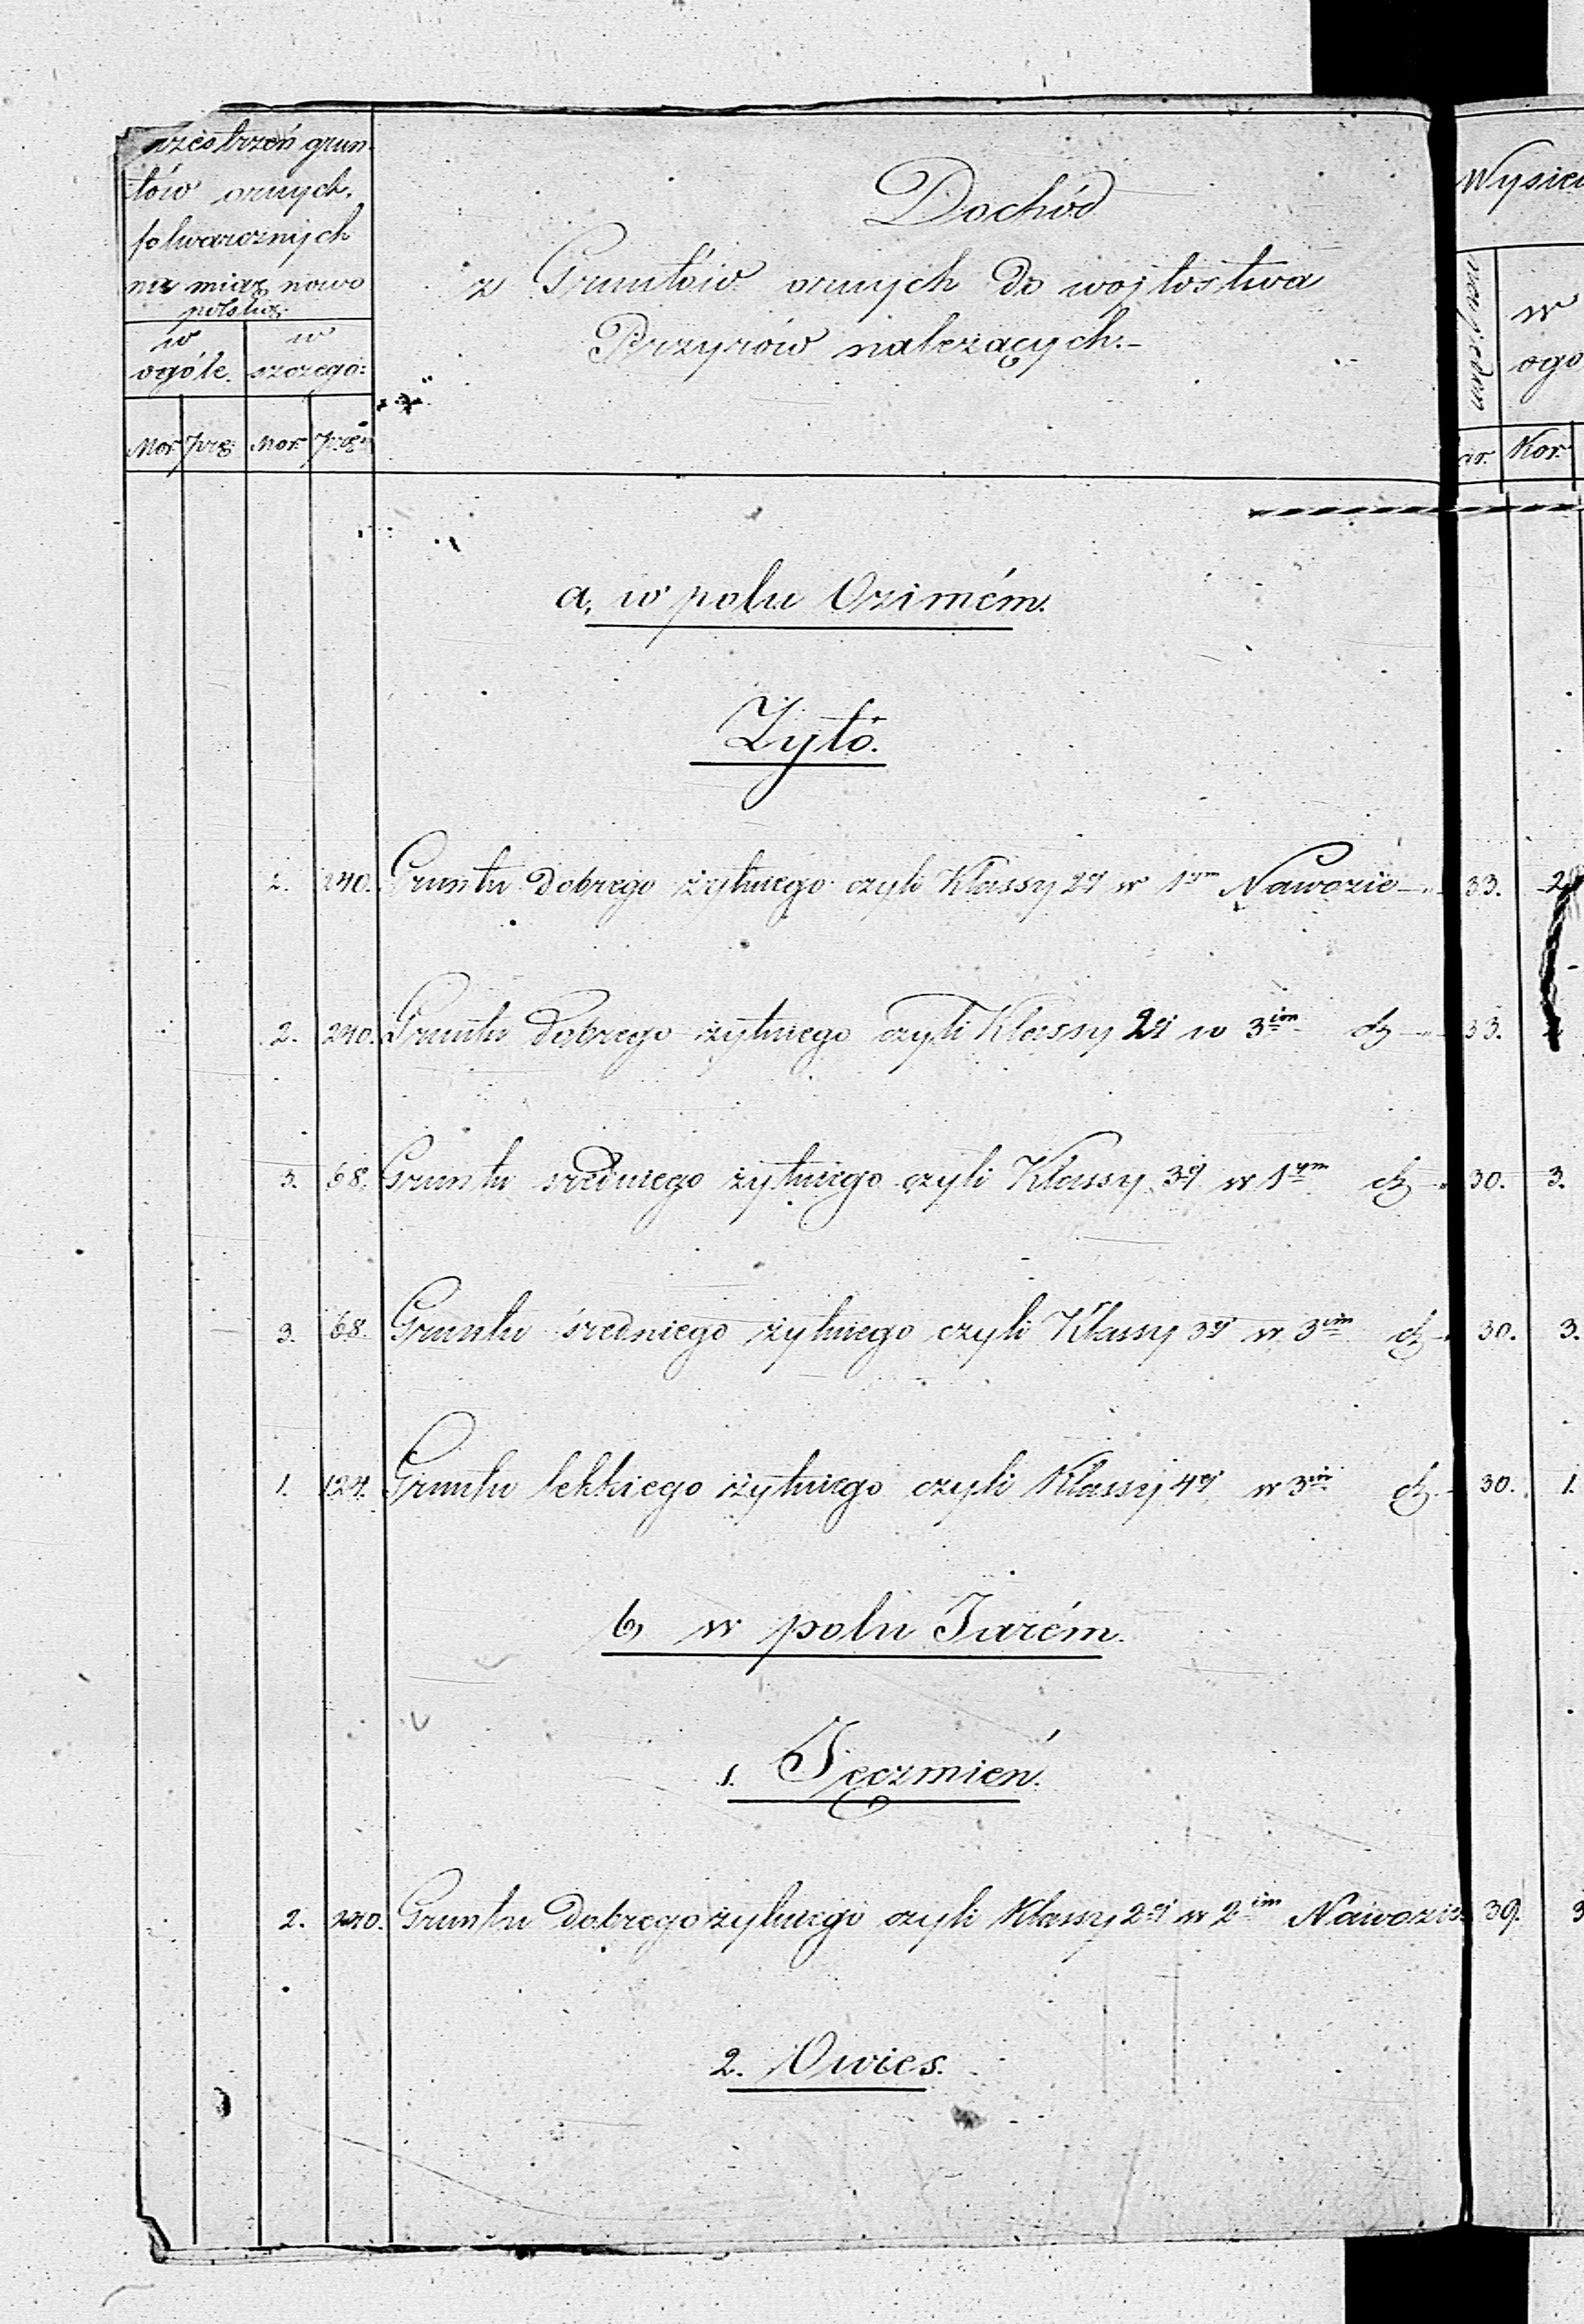 rzestrzeń grun-
tów ornych
folwarcznych
na miarę nowo
polską
w ogóle. w szczegó:
Mor: Pręt: Mor: Pręt:
Dochód
z Gruntów ornych do wojtostwa
Przyrów należących.-
Wysie
w
ogó
gar. Kor.
a, w polu Ozimém.
Żyto.
2. 240. Gruntu dobrego żytniego czyli Klassy 2ej w 1ym Nawozie 33. 2
2. 240. Gruntu dobrego żytniego czyli Klassy 2ej w 3im dto 33.
3. 68. Gruntu sredniego żytniego czyli Klassy 3ej w 1ym dto 30. 3.
3. 68. Gruntu średniego żytniego czyli Klassy 3ej w 3im dto 30. 3.
1. 124. Gruntu lekkiego żytniego czyli Klassy 4ej w 3im dto 30. 1.
b, w polu Jarém.
1. Jęczmień.
2. 240. Gruntu dobrego żytniego czyli Klassy 2ej w 2im Nawozie 39. 3
2. Owies.